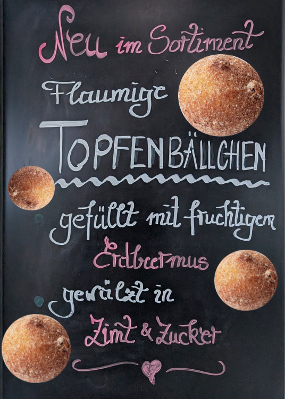 Neu im Sortiment
Flaumige
TOPFENBÄLLCHEN
gefüllt mit fruchtigem
Erdbeermus
gewälzt in
Zimt & Zucker